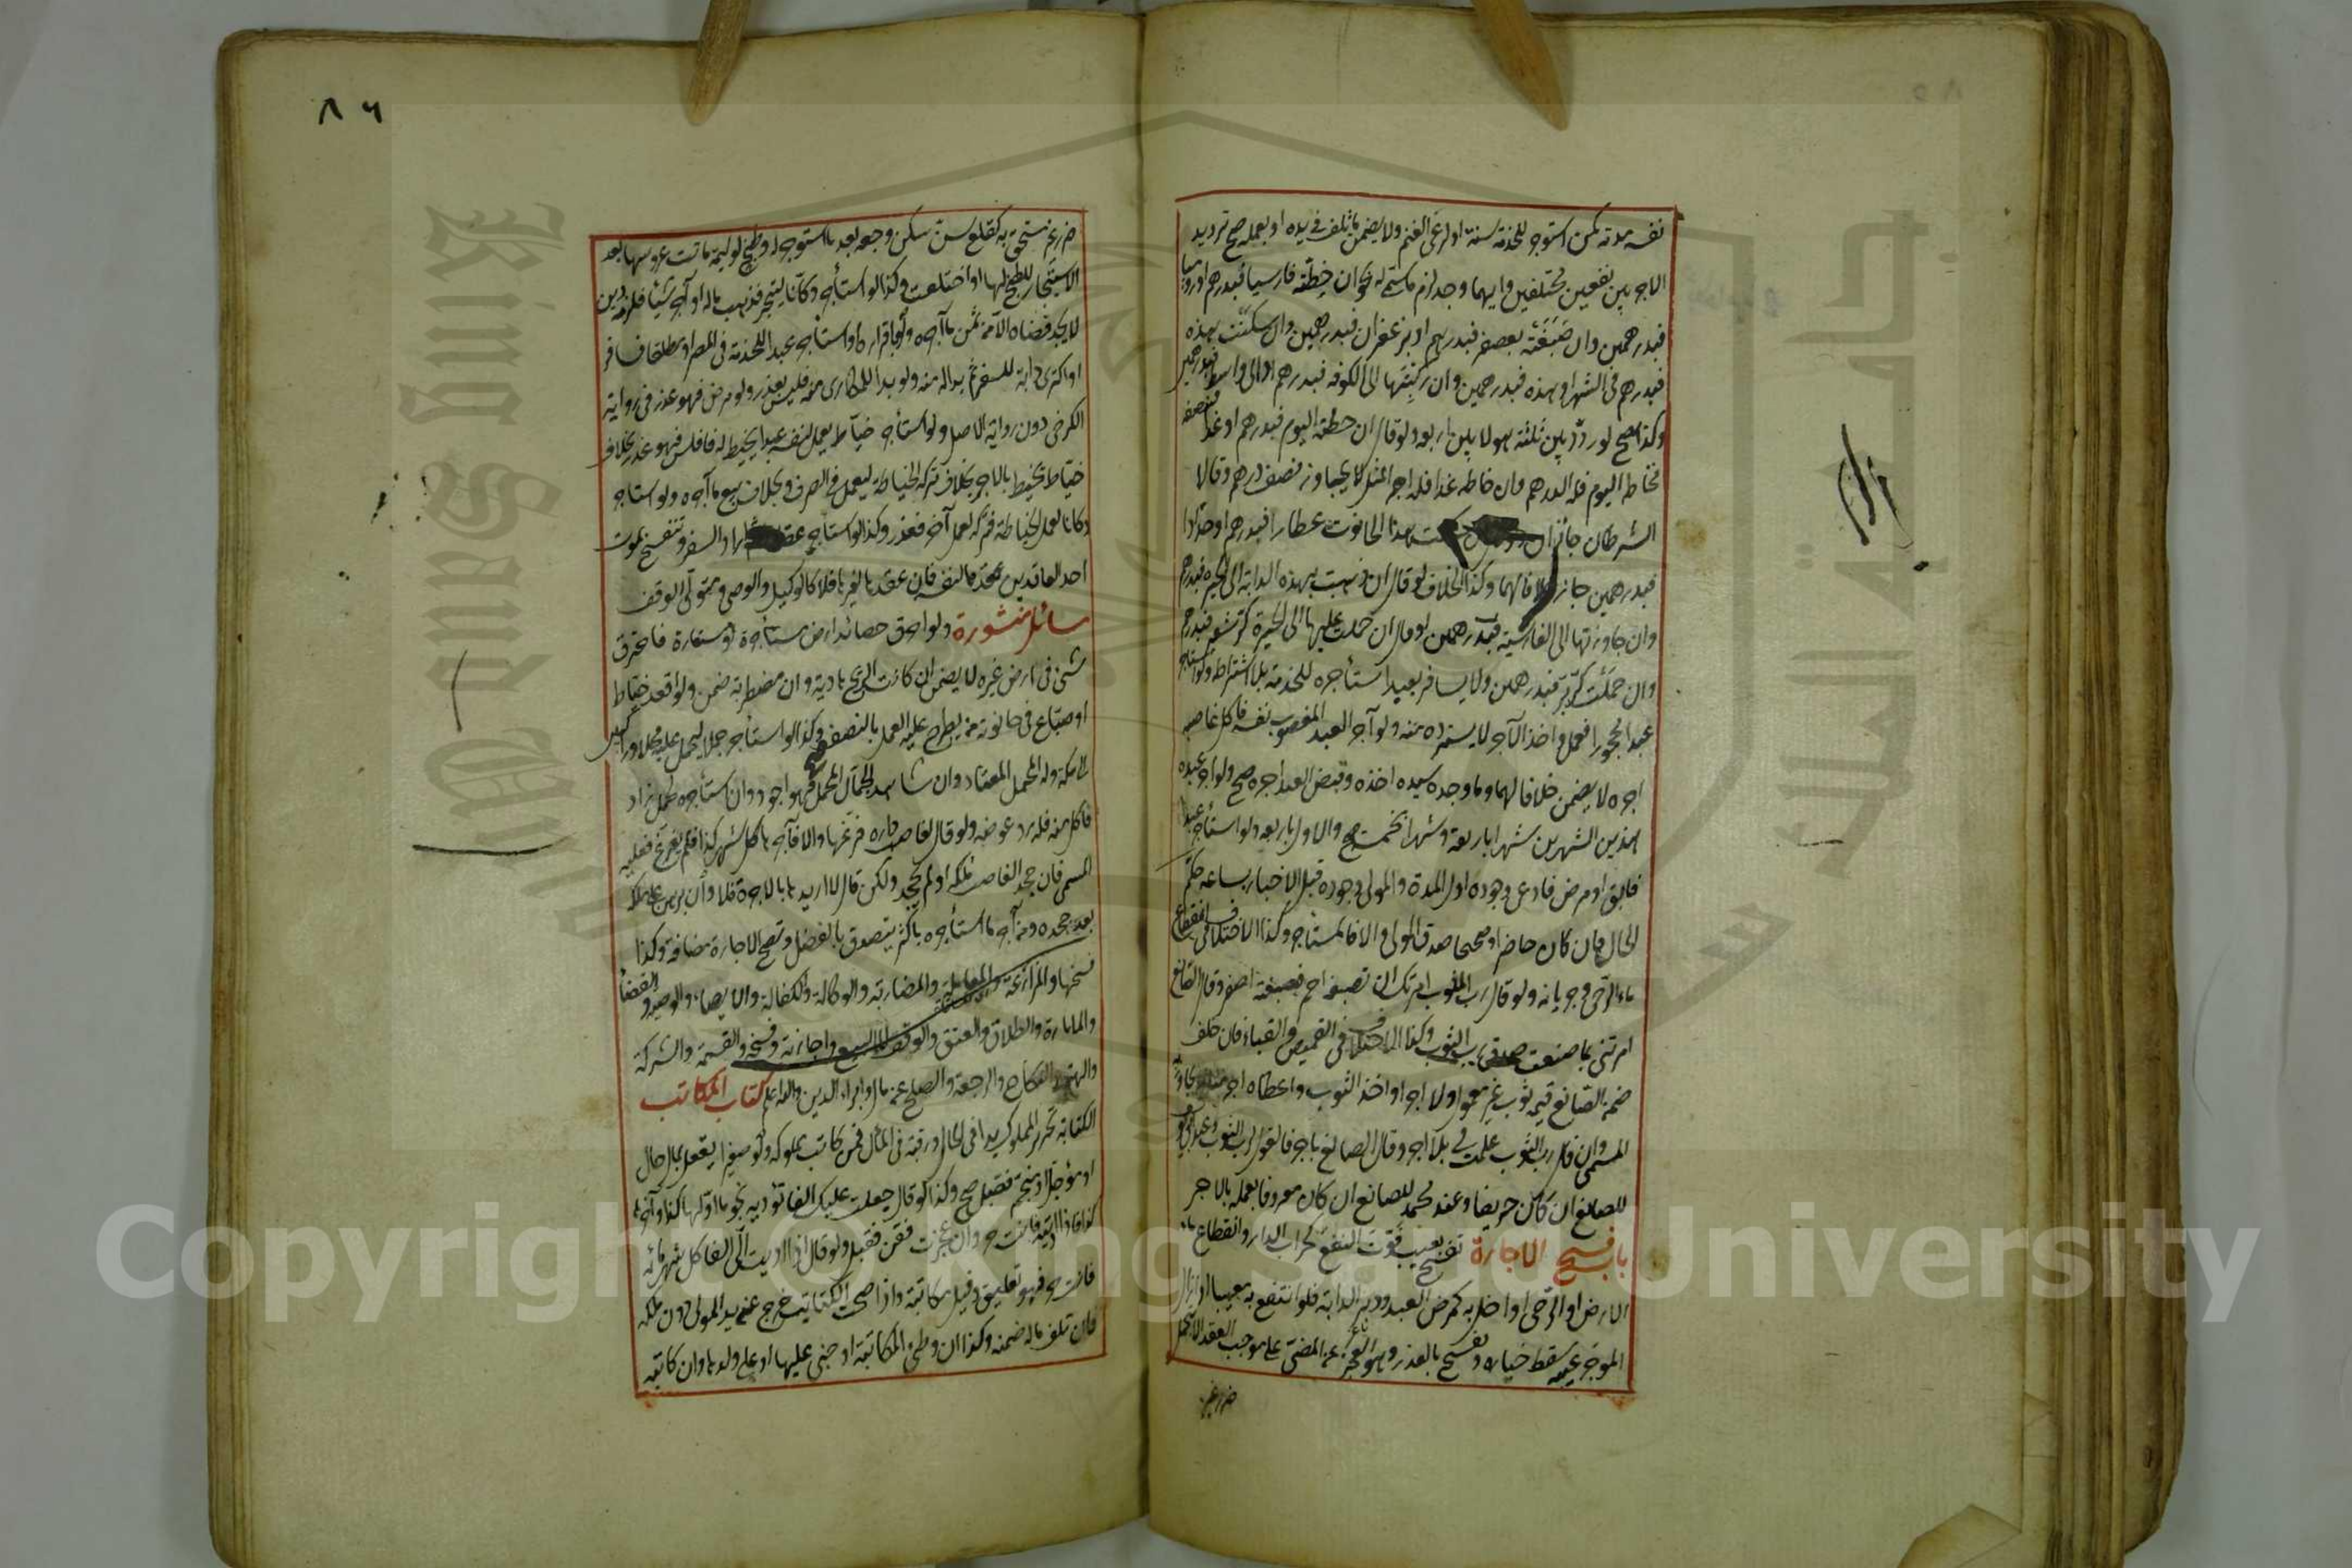 نفسه مدته كمن استوجر للخدمة سنة او لرعي الغنم ولا يضمن ما تلف في يده او بعمله صح ترديد
الاجر بين نفعين مختلفين وايهما وجد لزم ما سمى له نحو ان خطته فارسيا فبدرهم او روميا
فبدرهمين وان صبغته بعصفر فبدرهم او بزعفران فبدرهمين وان سكنت هذه
فبدرهم في الشهر او هذه فبدرهمين وان ركبتها الى الكوفة فبدرهم او الى واسط فبدرهمين
وكذا يصح لو ردد بين ثلثة هو لا بين اربعة ولو قال ان خطته اليوم فبدرهم او غدا فبنصفه
فخاطه اليوم فله الدرهم وان خاطه غدا فله اجر المثل لا يجاوز نصف درهم وقالا
الشرطان جائزان سكنت هذا الحانوت عطارا فبدرهم او حدادا
فبدرهمين جاز خلافا لهما وكذا الخلاف لو قال ان ذهبت بهذه الدابة الى الحيرة فبدرهم
وان جاوزتها الى القادسية فبدرهمين او قال ان حملت عليها الى الحيرة كر شعير فبدرهم
وان حملت كر بر فبدرهمين ولا يسافر بعبد استأجره للخدمة بلا اشتراط ولو استأجر
عبدا محجورا فعمل واخذ الاجر لا يسترده منه ولو آجر العبد المغصوب نفسه فاكل غاصبه
اجره لا يضمن خلافا لهما وما وجده سيده اخذه وقبض العبد اجره صح ولو آجر عبده
هذين الشهرين شهرا باربعة وشهرا بخمسة صح والاول باربعة ولو استأجر عبدا
فابق او مرض فادعى وجوده اول المدة والمولى وجوده قبل الاخبار بساعة حكم
الحال فان كان حاضرا وصحيحا صدق المولى والا فالمستأجر وكذا الاختلاف في انقطاع
ماء الرحى وجريانه ولو قال رب الثوب امرتك ان تصبغه احمر فصبغته اصفر وقال الصانع
امرتني بما صنعت صدق رب الثوب وكذا الاختلاف في القميص والقباء فان حلف
ضمن الصانع قيمة ثوب غير معمول ولا اجر او اخذ الثوب واعطاه اجر مثله لا يجاوز به
المسمى وان قال رب الثوب عملت لي بلا اجر وقال الصانع باجر فالقول لرب الثوب وعند ابي يوسف
للصانع ان كان حريفا وعند محمد للصانع ان كان معروفا بعمله بالاجر
باب فسخ الاجارة تفسخ بعيب فوت النفع كخراب الدار وانقطاع ماء
الارض او الرحى او اخل به كمرض العبد ودبر الدابة فلو انتفع به معيبا او ازال
الموجر عيبه سقط خياره وتفسخ بالعذر وهو العجز عن المضي على موجب العقد الا بتحمل
ضرر غير
٨٦
ضرر غير مستحق به كقلع سن سكن وجعه بعد ما استوجر له وطبخ لوليمة ماتت عروسها بعد
الاستيجار للطبخ لها او اختلعت وكذا لو استأجر دكانا ليتجر فذهب ماله او آجر شيئا فلزمه دين
لا يجد قضاه الا من ثمن ما آجره ولو باقراره او استأجر عبدا للخدمة في المصر او مطلقا فسافر
او اكترى دابة للسفر ثم بدا له منه ولو بدا للمكاري منه فليس بعذر ولو مرض فهو عذر في رواية
الكرخي دون رواية الاصل ولو استأجر خياط يعمل لنفسه عبدا يخيط له فافلس فهو عذر بخلاف
خياط يخيط بالاجر بخلاف تركه الخياطة ليعمل في الصرف وبخلاف بيع ما آجره ولو استأجر
دكانا لعمل الخياطة فتركه لعمل آخر فعذر وكذا لو استأجر عقارا اراد السفر وتنفسخ بموت
احد العاقدين عقدها لنفسه فان عقدها لغيره فلا كالوكيل والوصي ومتولي الوقف
مسائل منثورة ولو احرق حصائد ارض مستأجرة او مستعارة فاحترق
شئ في ارض غيره لا يضمن ان كانت الريح هادية وان مضطربة ضمن ولو اقعد خياط
او صباغ في حانوته من يطرح عليه العمل بالنصف صح وكذا لو استأجر جملا ليحمل عليه محملا وراكبين
الى مكة وله المحمل المعتاد وان شاهد الجمال المحمل فهو اجود وان استأجره لحمل زاد
فاكل منه فله رد عوضه ولو قال لغاصب داره فرغها والا فآجرها كل شهر كذا فلم يفرغ فعليه
المسمى فان جحد الغاصب ملكه او لم يجحد ولكن قال لا اريدها بالاجرة فلا وان برهن على ملكه
بعد جحده ومن آجر ما استأجره باكثر يتصدق بالفضل وتصح الاجارة مضافة وكذا
فسخها والمزارعة والمعاملة والمضاربة والوكالة والكفالة والايصاء والوصية والقضاء
والامارة والطلاق والعتق والوقف لا البيع واجازته وفسخه والقسمة والشركة
والهبة والنكاح والرجعة والصلح عن مال وابراء الدين والله اعلم كتاب المكاتب
الكتابة تحرير المملوك يدا في الحال ورقبة في المآل فمن كاتب مملوكه ولو صغيرا يعقل بمال حال
او مؤجل او منجم فقبل صح وكذا لو قال جعلت عليك الفا تؤديه نجوما اولها كذا وآخرها
كذا فاذا اديته فانت حر وان عجزت فقن فقبل ولو قال اذا اديت الي الفا كل شهر مائة
فانت حر فهو تعليق وقيل مكاتبة واذا صحت الكتابة خرج عن يد المولى دون ملكه
فان تلف ماله ضمنه وكذا ان وطئ المكاتبة او جنى عليها او على ولدها وان كاتبه
Copyright © King Saud University